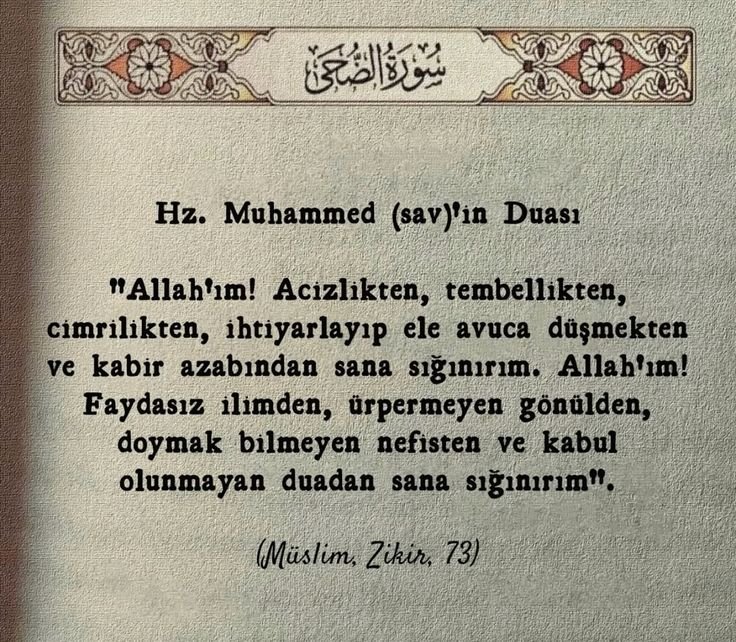 سُورَةُ الضُّحَىٰ
Hz. Muhammed (sav)'in Duası
"Allah'ım! Acizlikten, tembellikten,
cimrilikten, ihtiyarlayıp ele avuca düşmekten
ve kabir azabından sana sığınırım. Allah'ım!
Faydasız ilimden, ürpermeyen gönülden,
doymak bilmeyen nefisten ve kabul
olunmayan duadan sana sığınırım".
(Müslim, Zikir, 73)